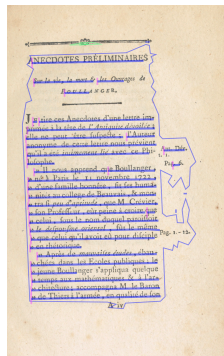 ANECDOTES PRÉLIMINAIRES
Sur la vie, la mort & les Ouvrages de
BOULLANGER.
Je tire ces Anecdotes d'une lettre im-
primée à la tête de l'Antiquité dévoilée :
elle ne peut être suspecte ; l'Auteur
anonyme de cette lettre nous prévient
qu'il a été intimement lié avec ce Phi-
losophe.
Il nous apprend que Boullanger
né à Paris le 11 novembre 1722,
d'une famille honnête, fit ses huma-
nités au college de Beauvais, & mon-
tra si peu d'aptitude, que M. Crévier,
son Professeur, eut peine à croire que
celui, sous le nom duquel paroissoit
le despotisme oriental, fût le même
que celui qu'il avoit eû pour disciple
en rhétorique.
Après de mauvaises études, ébau-
chées dans les Ecoles publiques, le
jeune Boullanger s'appliqua quelque
temps aux mathématiques & à l'ar-
chitecture ; accompagna M. le Baron
de Thiers à l'armée, en qualité de son
Pag. 1.-12.